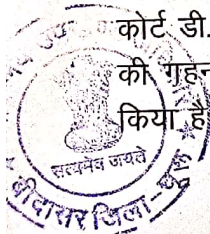 कोर्ट डी.
की गहन
किया है
सत्यमेव जयते
बीदासर जिला-चूरू